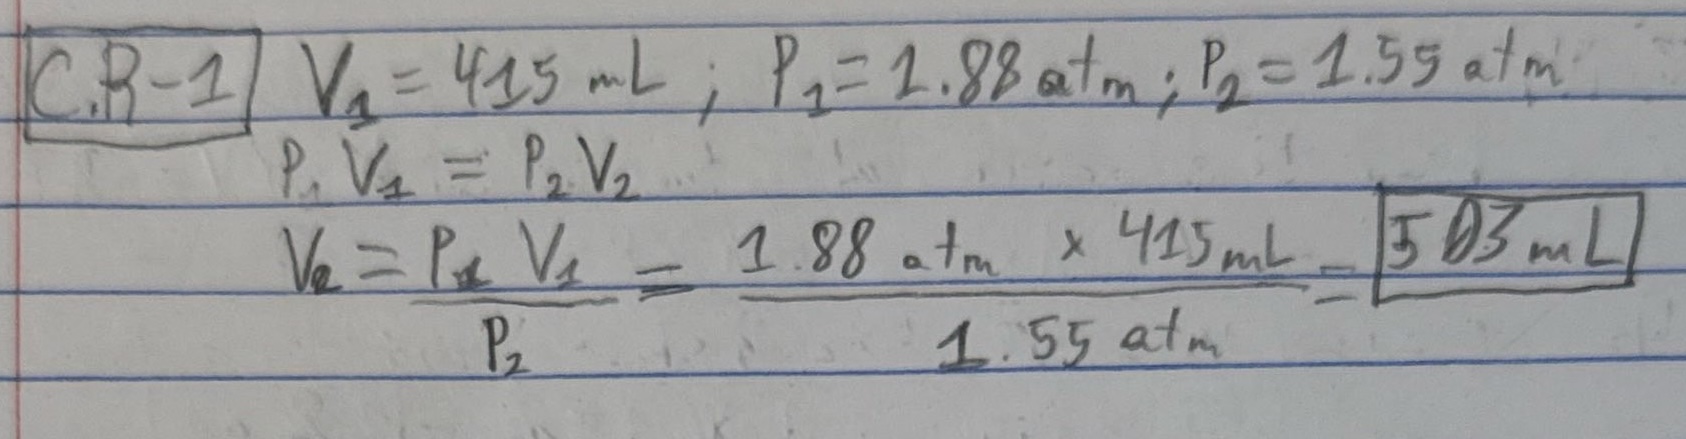 C.R-1 V₁ = 415 mL ; P₁ = 1.88 atm ; P₂ = 1.55 atm
P₁ V₁ = P₂ V₂
V₂ = P₁ V₁ / P₂ = 1.88 atm × 415 mL / 1.55 atm = 503 mL